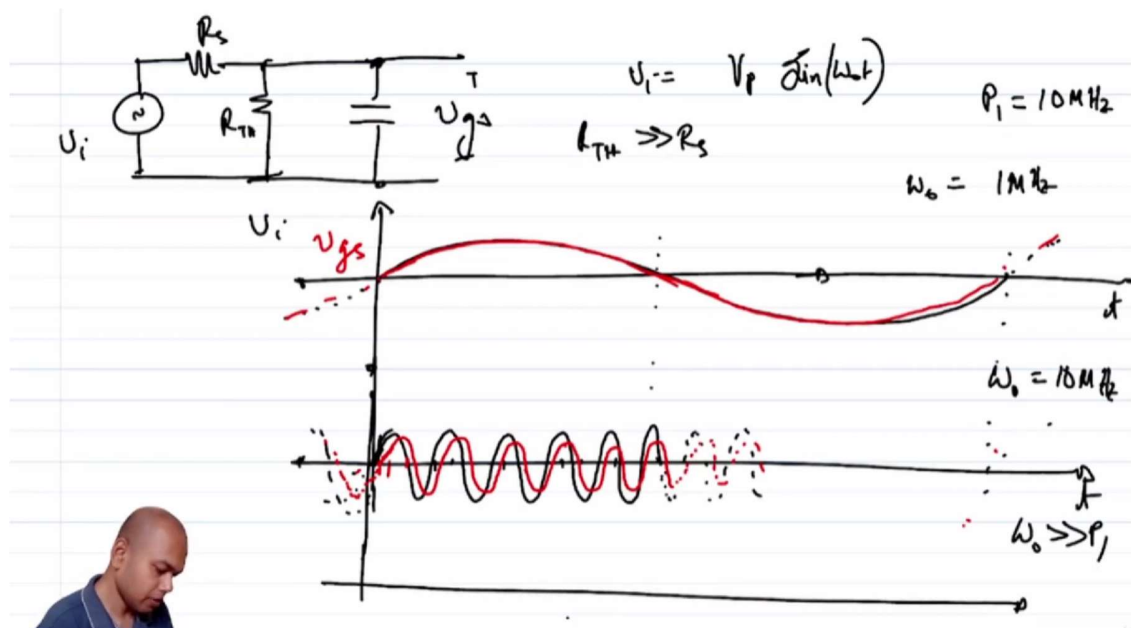 Rs
RTH
Vi
Vgs
Vi = Vp Sin(ω0t)
RTH >> Rs
P1 = 10MHz
ω0 = 1MHz
Vi
Vgs
t
ω0 = 10MHz
t
ω0 >> P1